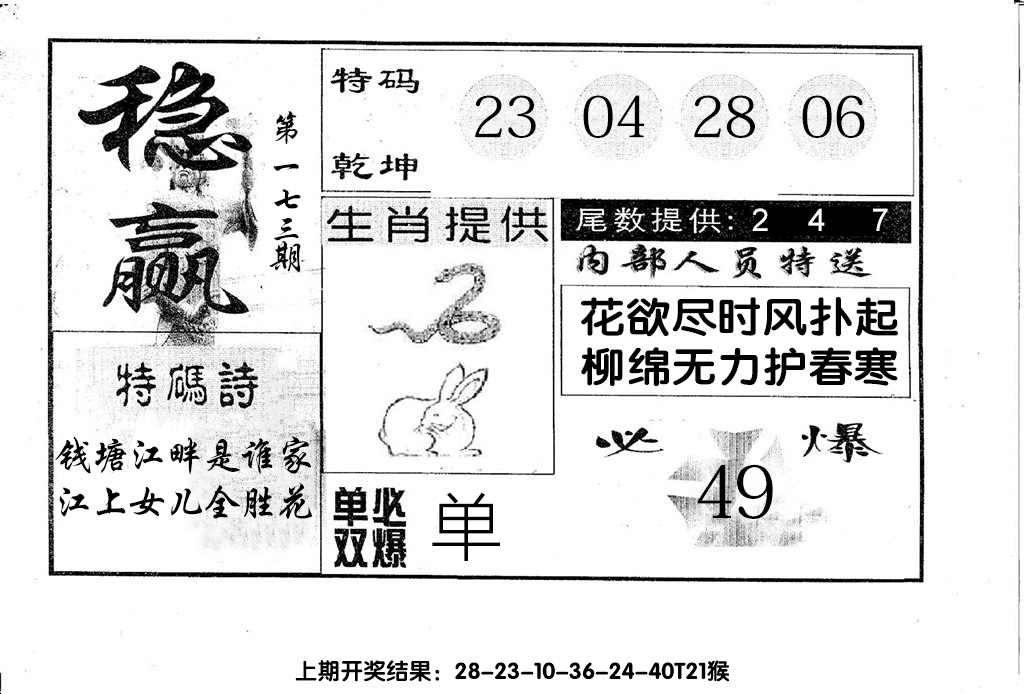 稳赢
第一七三期
特码
乾坤
23 04 28 06
生肖提供
尾数提供: 2 4 7
内部人员特送
花欲尽时风扑起
柳绵无力护春寒
特碼詩
钱塘江畔是谁家
江上女儿全胜花
必 爆
49
单双
必爆
单
上期开奖结果：28-23-10-36-24-40T21猴